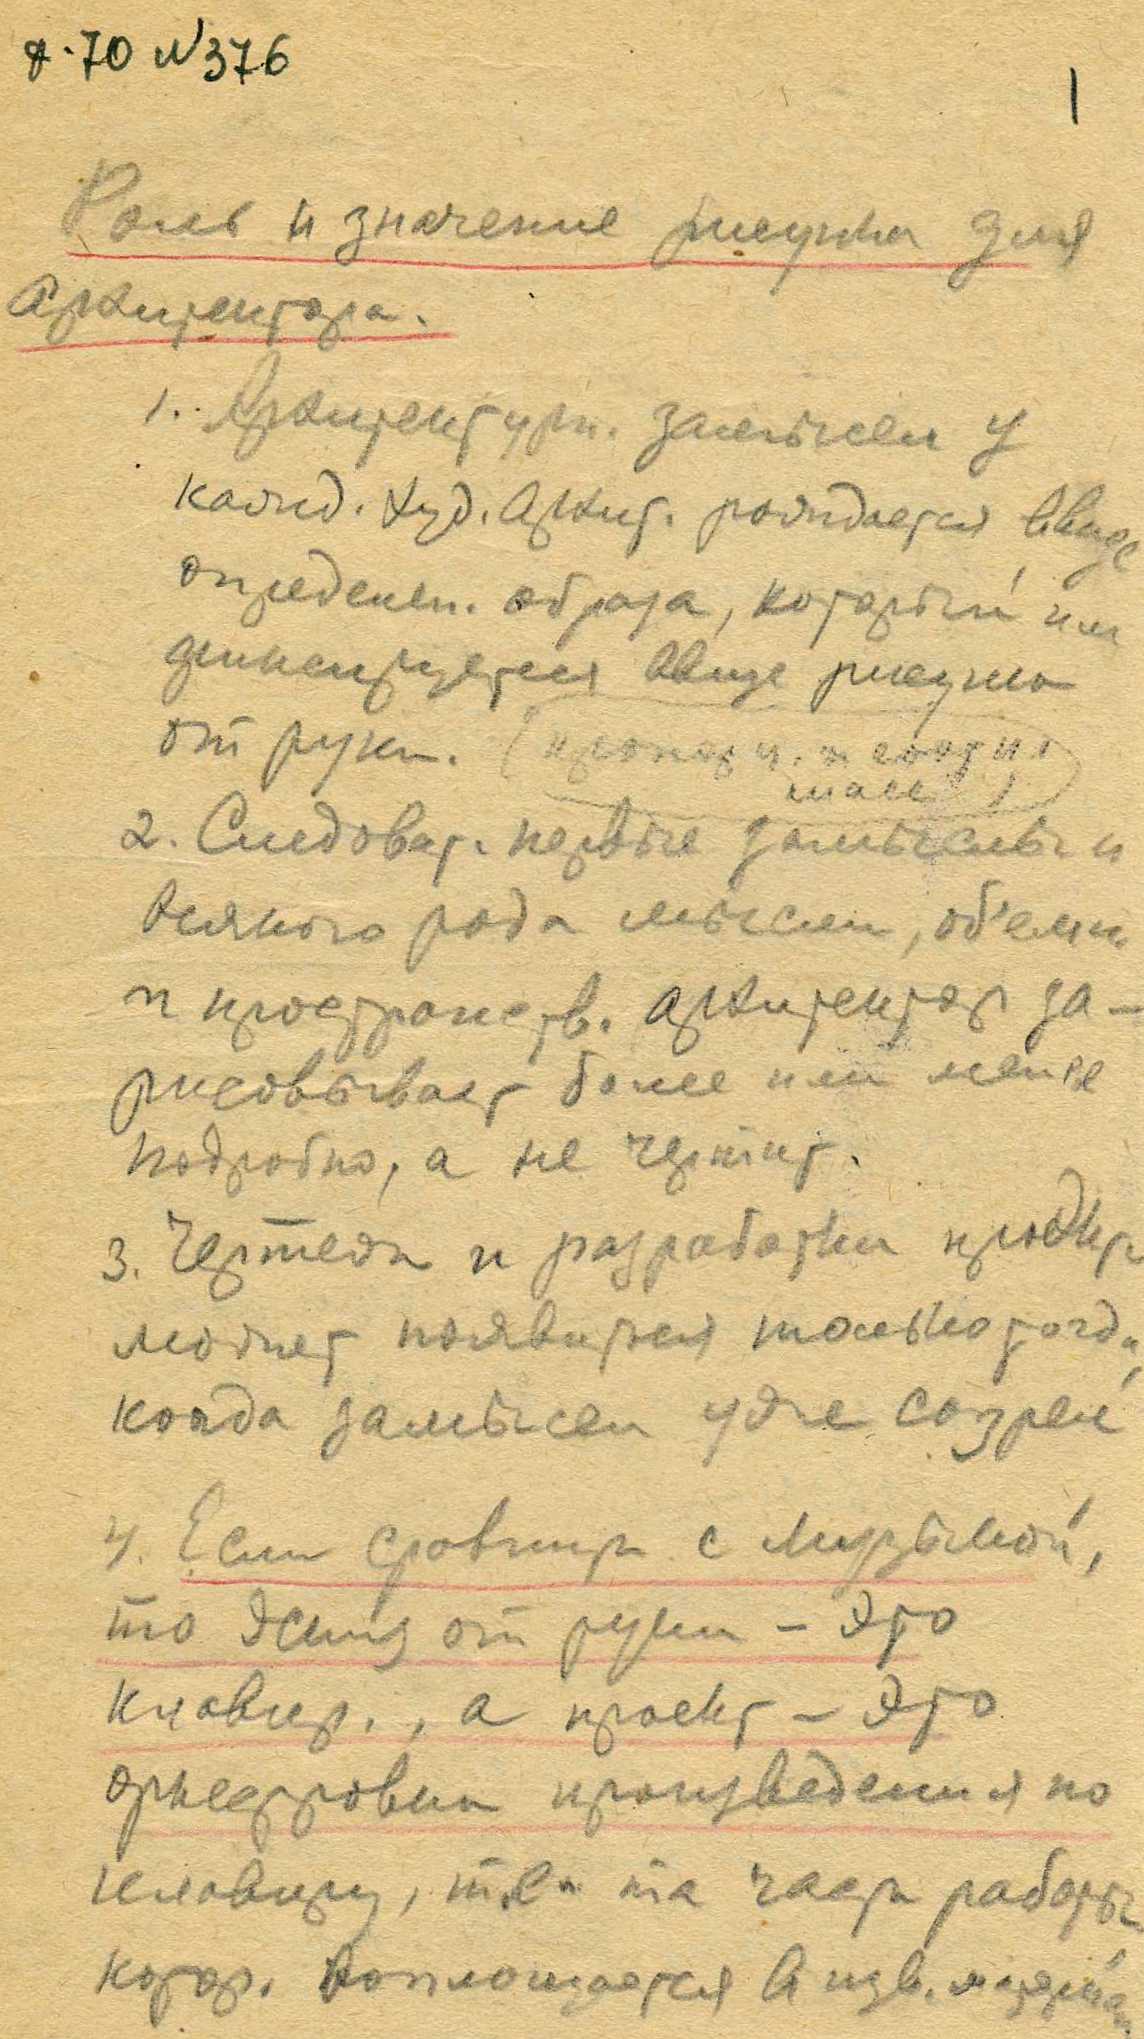 ф. 70 №376
1
Роль и значение рисунка для
архитектора.
1. Архитектурн. замысел у
кажд. худ. архит. рождается ввиде
определен. образа, который им
фиксируется ввиде рисунка
от руки. (пропорц. и соотн.
масс)
2. Следоват. первые замыслы и
всякого рода мысли, об'емн.
и пространств. архитектор за-
рисовывает более или менее
подробно, а не чертит.
3. Чертежи и разработки
может появиться только тогда,
когда замысел уже созрел
4. Если сравнить с музыкой,
то эскиз от руки – это
клавир., а проект – это
оркестровка произведения по
клавиру, т.е. та часть работы
котор. воплощается в изв. материал